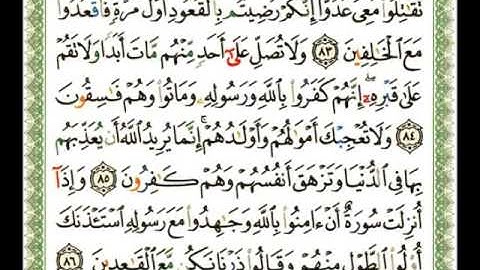 تُقَٰتِلُوا۟ مَعِىَ عَدُوًّا إِنَّكُمْ رَضِيتُم بِٱلْقُعُودِ أَوَّلَ مَرَّةٍ فَٱقْعُدُوا۟
مَعَ ٱلْخَٰلِفِينَ ٨٣ وَلَا تُصَلِّ عَلَىٰٓ أَحَدٍ مِّنْهُم مَّاتَ أَبَدًا وَلَا تَقُمْ
عَلَىٰ قَبْرِهِۦٓ ۖ إِنَّهُمْ كَفَرُوا۟ بِٱللَّهِ وَرَسُولِهِۦ وَمَاتُوا۟ وَهُمْ فَٰسِقُونَ
٨٤ وَلَا تُعْجِبْكَ أَمْوَٰلُهُمْ وَأَوْلَٰدُهُمْ ۚ إِنَّمَا يُرِيدُ ٱللَّهُ أَن يُعَذِّبَهُم
بِهَا فِى ٱلدُّنْيَا وَتَزْهَقَ أَنفُسُهُمْ وَهُمْ كَٰفِرُونَ ٨٥ وَإِذَآ
أُنزِلَتْ سُورَةٌ أَنْ ءَامِنُوا۟ بِٱللَّهِ وَجَٰهِدُوا۟ مَعَ رَسُولِهِ ٱسْتَـْٔذَنَكَ
أُو۟لُوا۟ ٱلطَّوْلِ مِنْهُمْ وَقَالُوا۟ ذَرْنَا نَكُن مَّعَ ٱلْقَٰعِدِينَ ٨٦